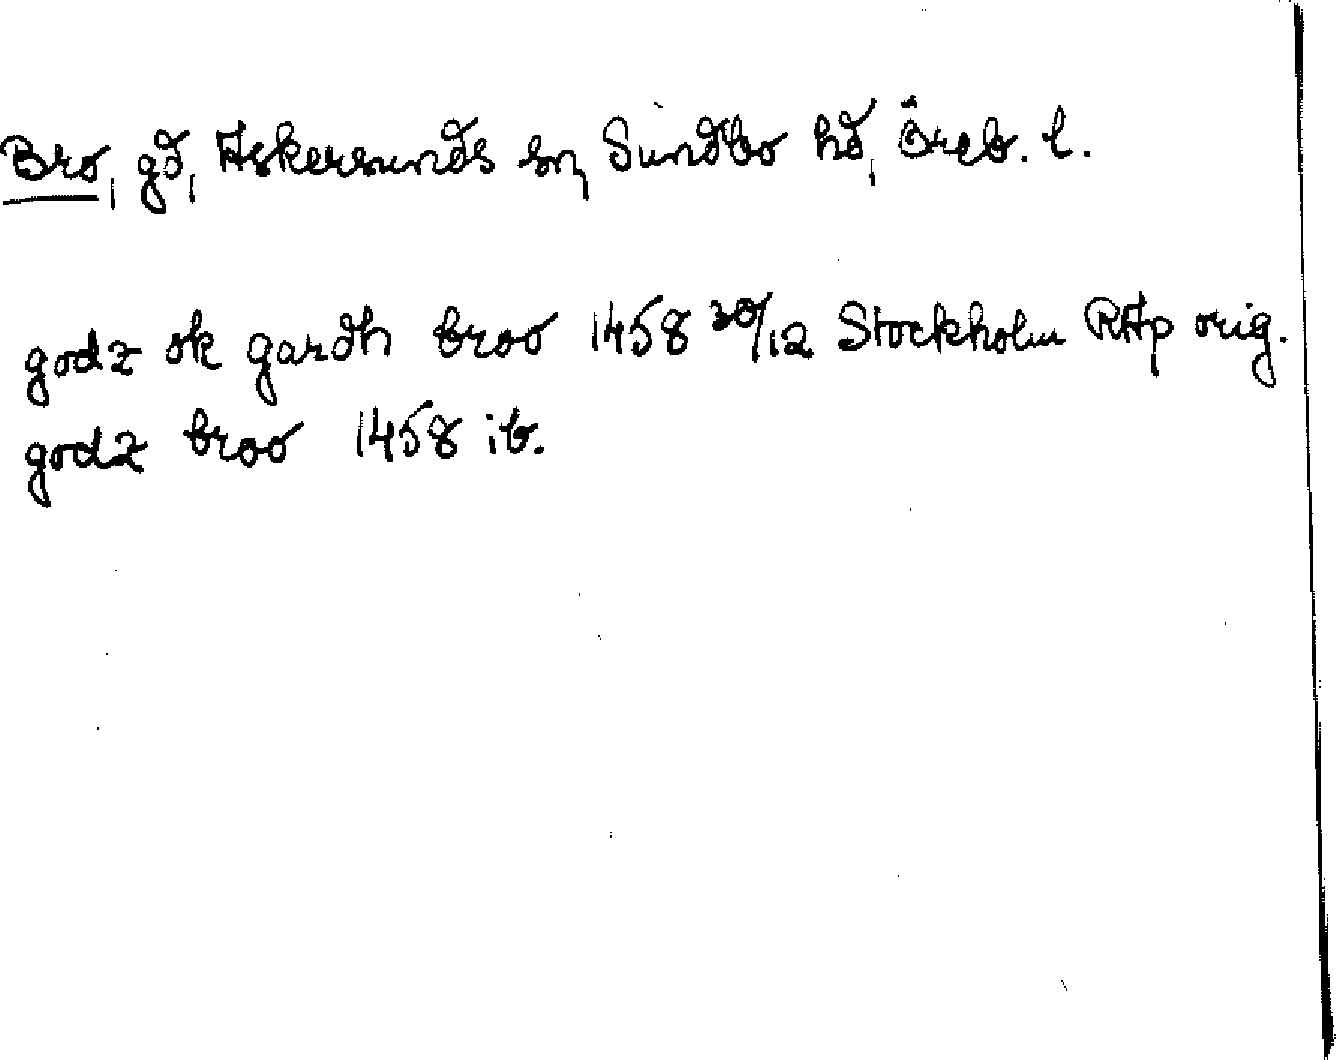 Bro, gd, Askersunds sn, Sundbo hd, Öreb. l.
godz ok gardh broo 1458 30/12 Stockholm RAp orig.
godz broo 1458 ib.